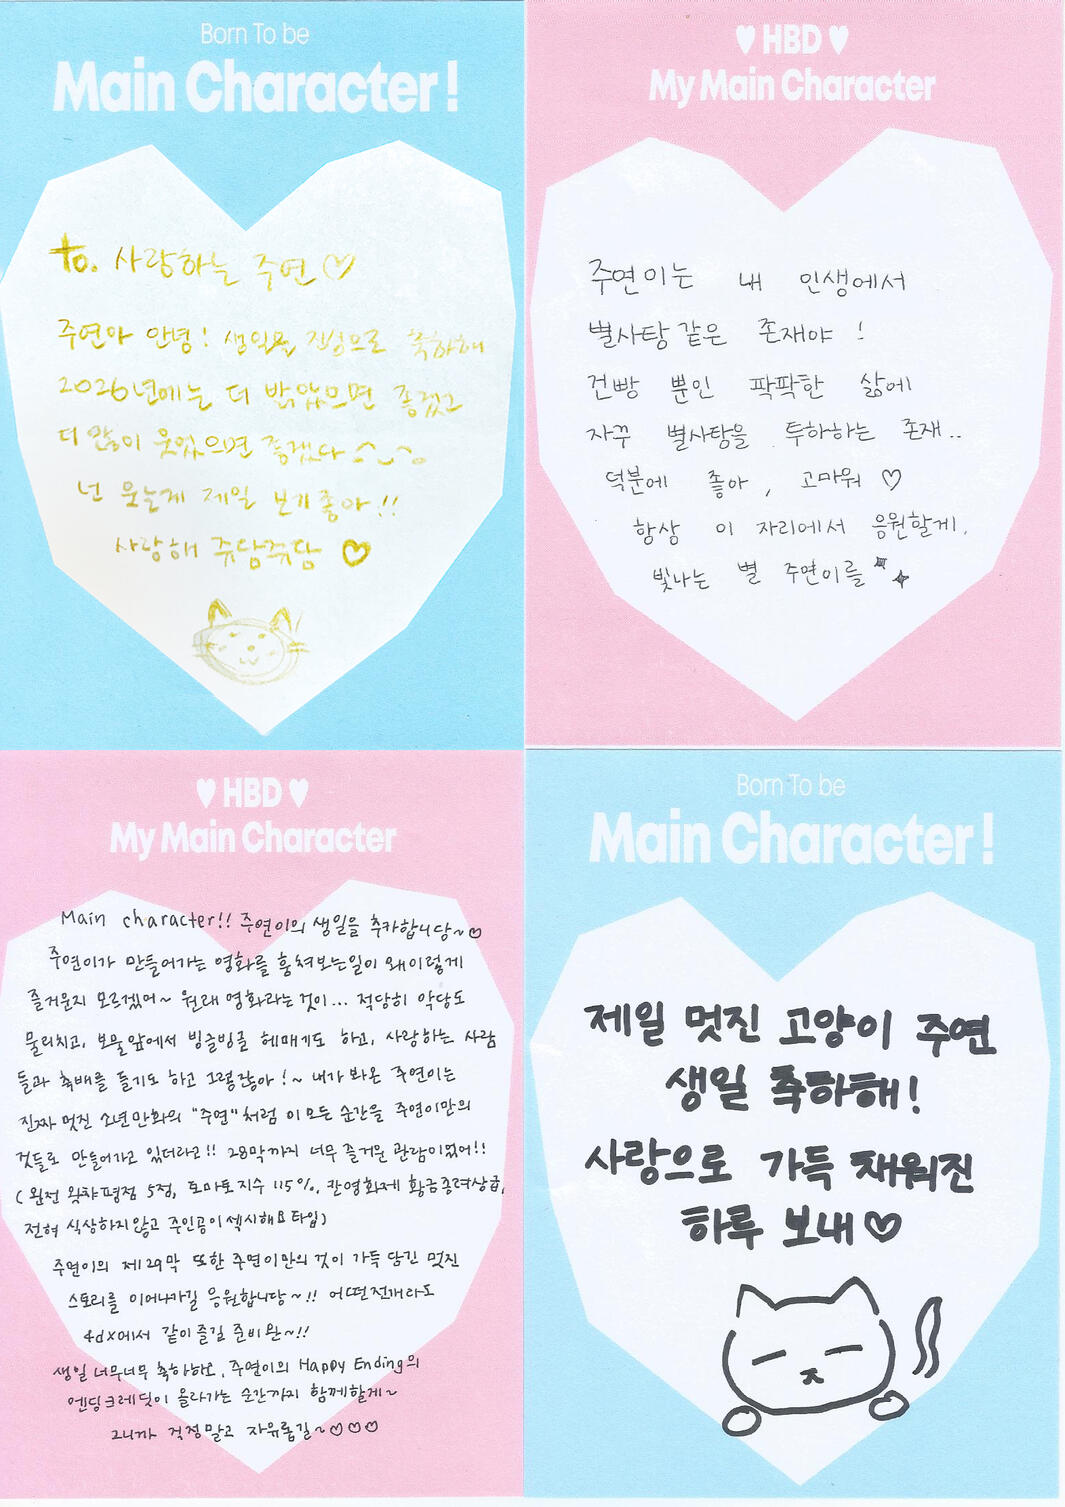 Born To be
Main Character!
to. 사랑하는 주연♡
주연아 안녕! 생일을 진심으로 축하해
2026년에는 더 밝았으면 좋겠고
더 많이 웃었으면 좋겠다 ^‿^。
넌 웃는게 제일 보기좋아!!
사랑해 쥬담쥬담 ♡
♥ HBD ♥
My Main Character
주연이는 내 인생에서
별사탕같은 존재야!
건빵 뿐인 팍팍한 삶에
자꾸 별사탕을 투하하는 존재..
덕분에 좋아, 고마워 ♡
항상 이 자리에서 응원할게,
빛나는 별 주연이를
♥ HBD ♥
My Main Character
Main character!! 주연이의 생일을 추카합니당~♡
주연이가 만들어가는 영화를 훔쳐보는일이 왜이렇게
즐거운지 모르겠어~ 원래 영화라는것이... 적당히 악당도
물리치고, 보물앞에서 빙글빙글 헤매기도 하고, 사랑하는 사람
들과 축배를 들기도 하고 그렇잖아!~ 내가 봐온 주연이는
진짜 멋진 소년만화의 "주연"처럼 이 모든 순간을 주연이만의
것들로 만들어가고 있더라고!! 28막까지 너무 즐거운 관람이었어!!
(완전 왓챠평점 5점, 토마토지수 115%, 칸영화제 황금종려상급,
전혀 식상하지않고 주인공이섹시해요타입)
주연이의 제29막 또한 주연이만의 것이 가득 담긴 멋진
스토리를 이어나가길 응원합니당~!! 어떤전개라도
4dx에서 같이즐길 준비완~!!
생일 너무너무 축하하고, 주연이의 Happy Ending의
엔딩크레딧이 올라가는 순간까지 함께할게~
그니까 걱정말고 자유롭길~♡♡♡
Born To be
Main Character!
제일 멋진 고양이 주연
생일 축하해!
사랑으로 가득 채워진
하루 보내♡